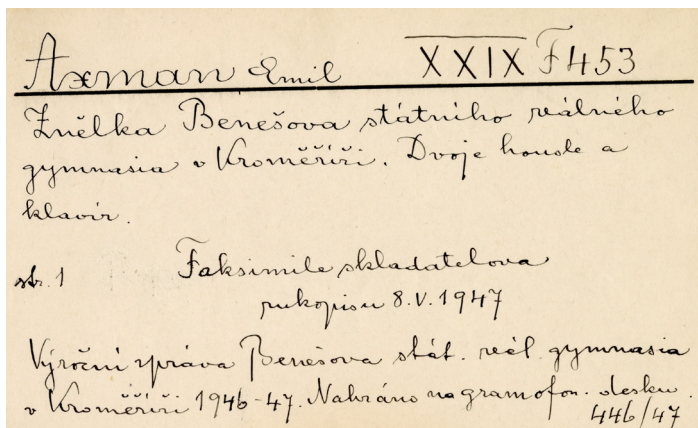 Axman Emil XXIX F 453
Znělka Benešova státního reálného
gymnasia v Kroměříži. Dvoje housle a
klavír.
str. 1 Faksimile skladatelova
rukopisu 8.V.1947
Výroční zpráva Benešova stát. reál. gymnasia
v Kroměříži 1946-47. Nahráno na gramofon. desku.
446/47